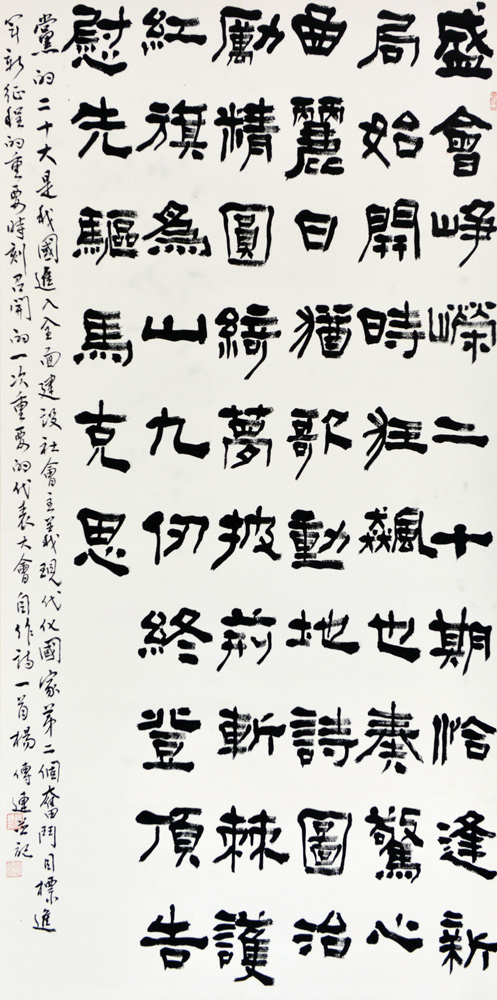 盛會崢嶸二十期恰逢新
局始開時狂飆也奏驚心
曲麗日猶歌動地詩圖治
勵精圓綺夢披荊斬棘護
紅旗為山九仞終登頂告
慰先驅馬克思
黨的二十大是我國進入全面建設社會主義現代化國家第二個奮鬥目標進
軍新征程的重要時刻召開的一次重要的代表大會自作詩一首楊傳連並記